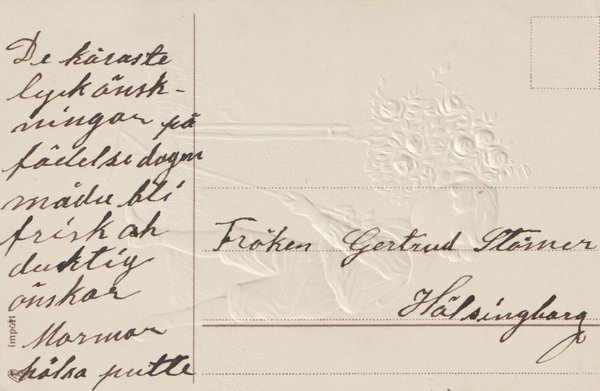 De käraste
lyckönsk-
ningar på
födelsedagen
mådu bli
frisk och
duktig
önskar
Mormor
hälsa putte
Fröken Gertrud Störner
Hälsingborg
import